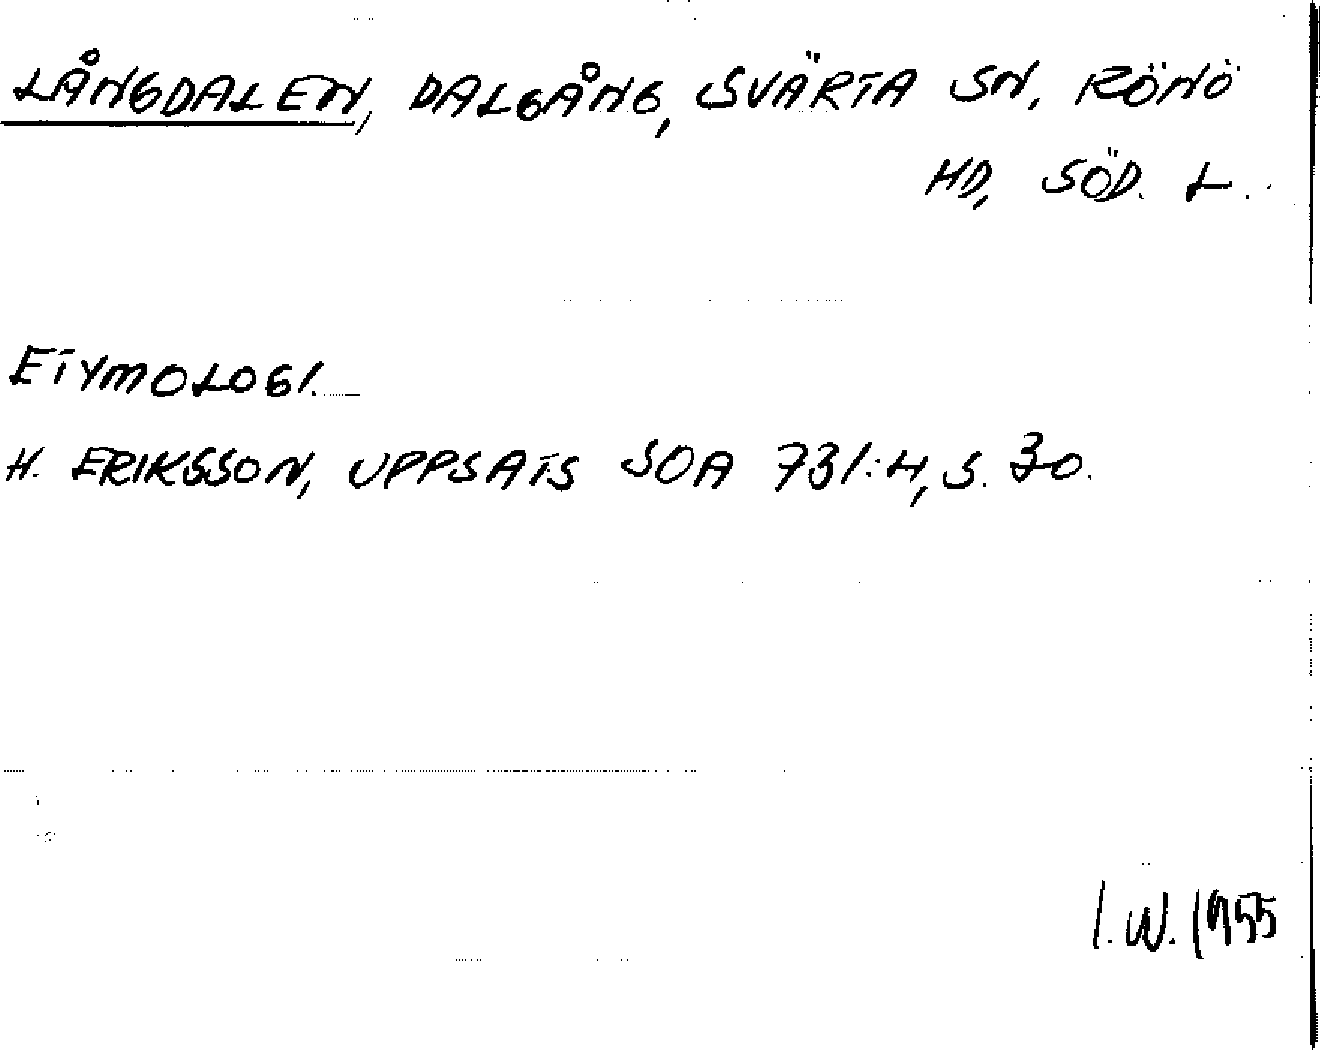 LÅNGDALEN, DALGÅNG, SVÄRTA SN, RÖNÖ
HD, SÖD. L.
ETYMOLOGI.
H. ERIKSSON, UPPSATS SOA 731:4, S. 30.
I.W. 1955